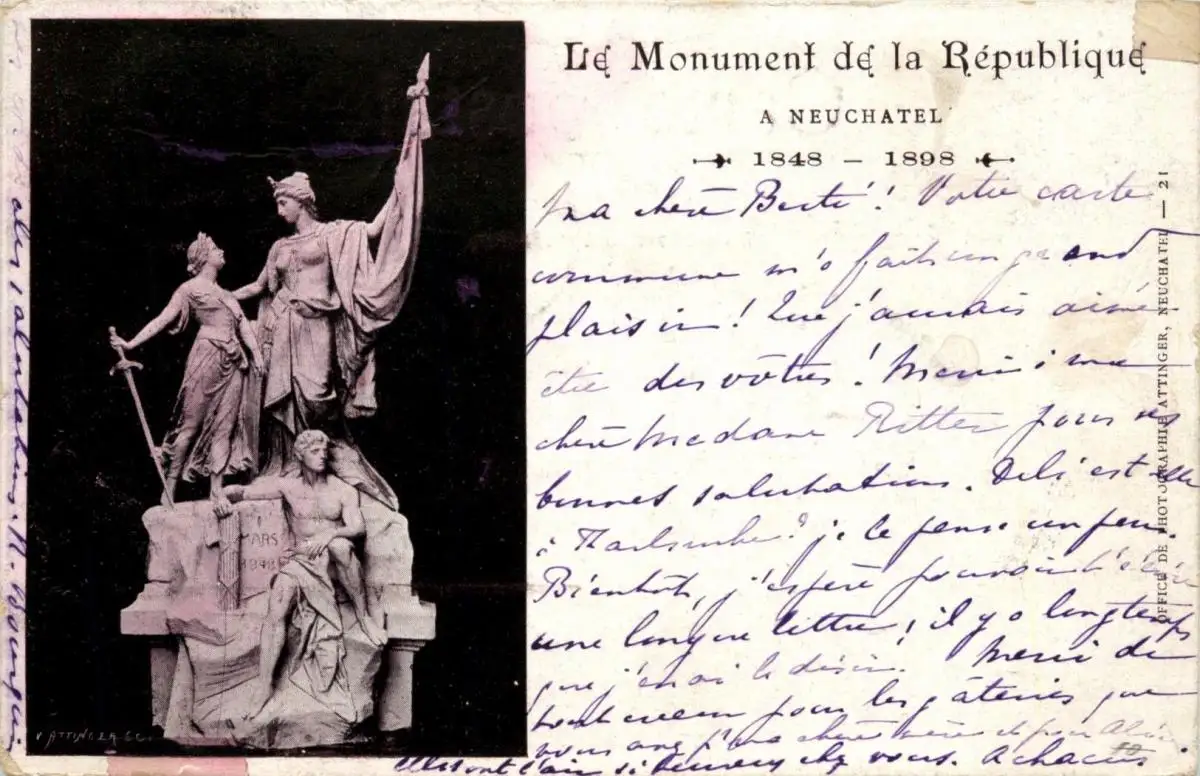 Le Monument de la République
A NEUCHATEL
1848 — 1898
Ma chère Berte! Votre carte
commune m'a fait un grand
plaisir! Que j'aurais aimé
être des vôtres! Merci à ma
chère Madame Ritter pour ses
bonnes salutations. est elle
à Karlsruhe? je le pense un peu.
Bientôt, j'espère pouvoir t'écrire
une longue lettre, il y a longtemps
que j'en ai le désir. Merci de
tout cœur pour les gâteries que
vous à ma chère mère et pour
Elles ont l'air si heureux chez vous. A chacun
salutations.
MARS
1848
V. ATTINGER SC.
OFFICE DE PHOTOGRAPHIE ATTINGER, NEUCHATEL — 21